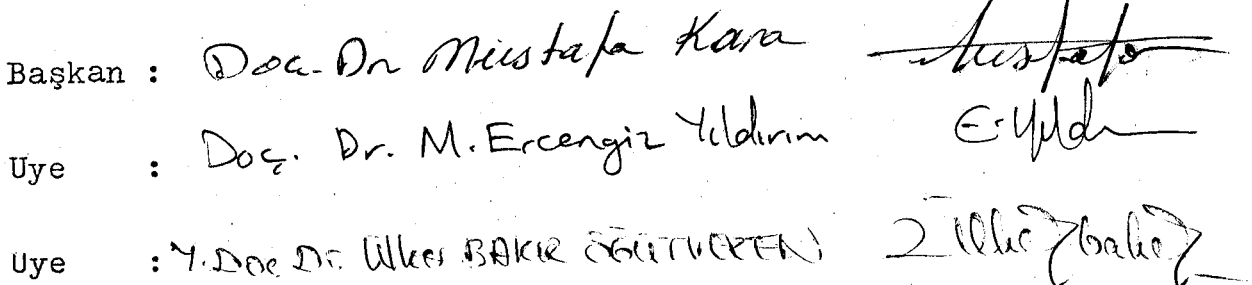 Başkan : Doç. Dr. Mustafa Kara
Uye : Doç. Dr. M. Ercengiz Yıldırım E. Yıldı
Uye : Y. Doç. Dr. Ülker BAKIR ÖĞÜTVEREN